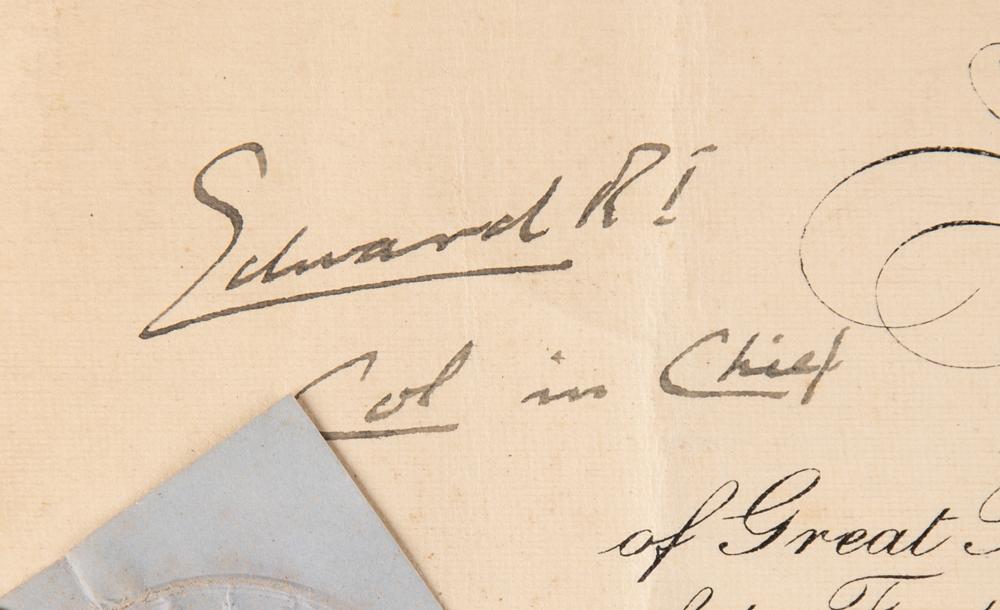 Edward RI
Col in Chief
of Great